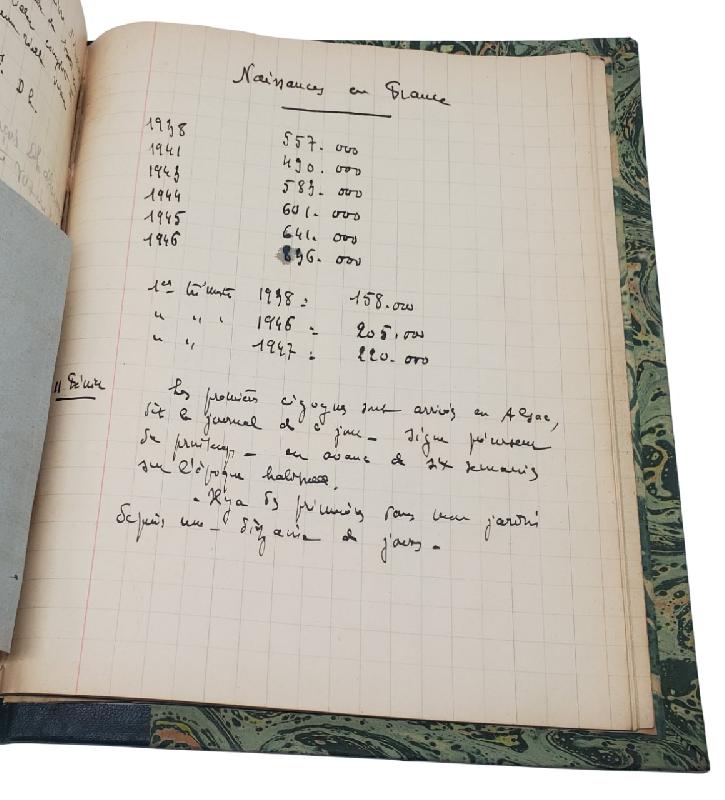 Naissances en France
1938 557.000
1941 490.000
1943 583.000
1944 601.000
1945 641.000
1946 836.000
1er trimestre 1938 = 158.000
" " " 1946 = 205.000
" " 1947 = 220.000
11 Février
Les premières cigognes sont arrivées en Alsace,
dit le journal de ce jour – signe précurseur
de printemps – en avance de six semaines
sur l'époque habituelle.
- Il y a des primevères dans mon jardin
depuis une dizaine de jours -